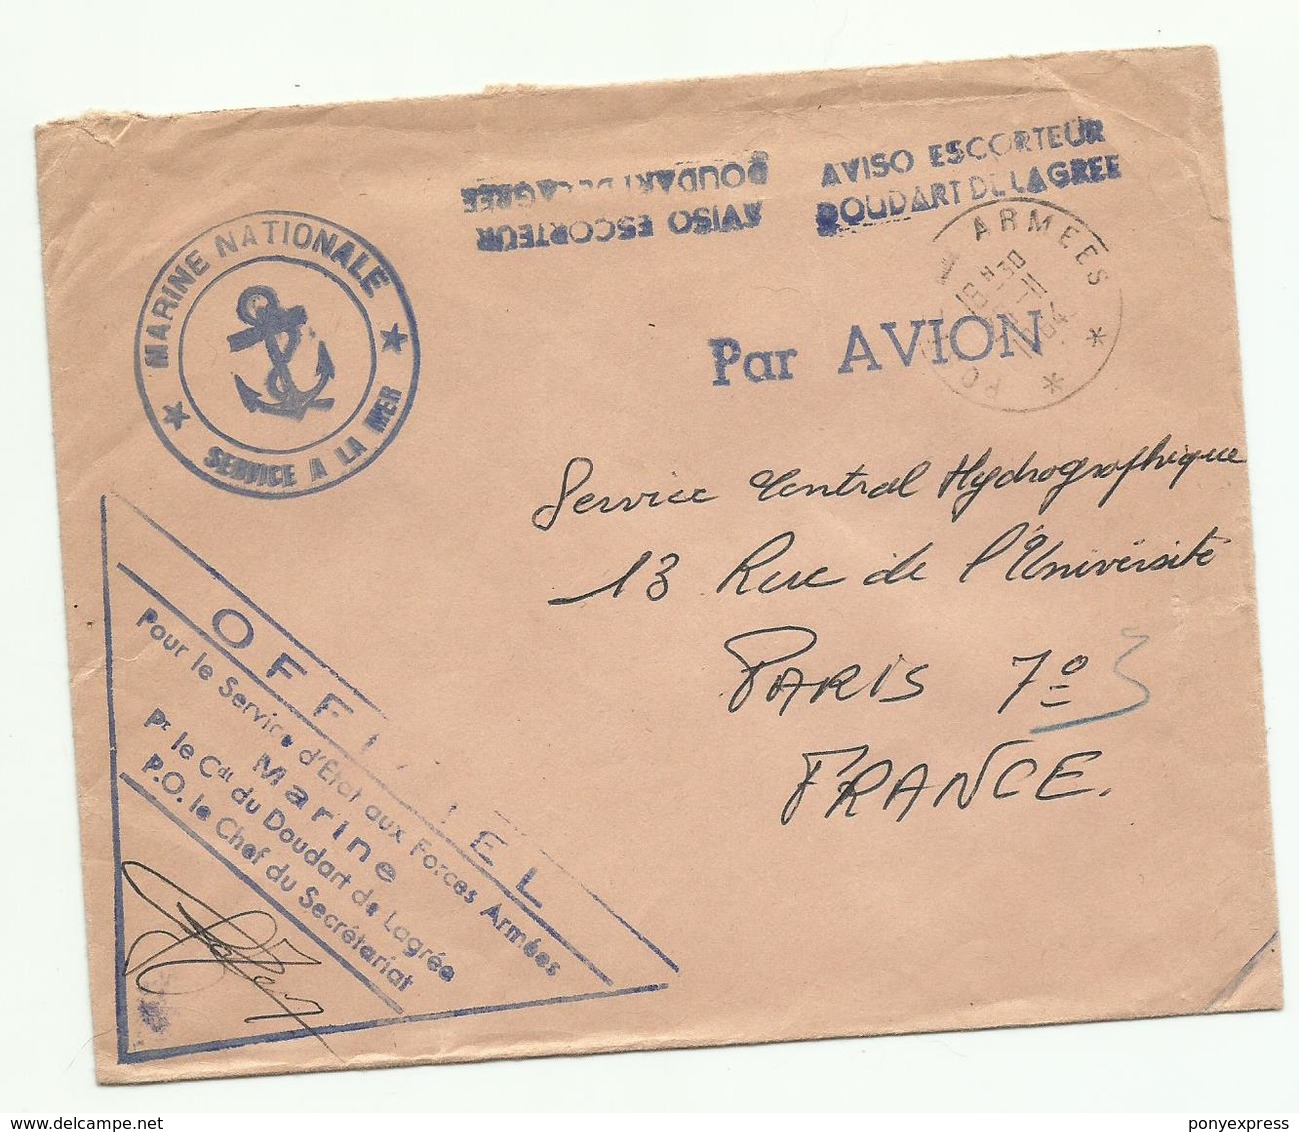 AVISO ESCORTEUR
DOUDART DE LAGREE
AVISO ESCORTEUR
DOUDART DE LAGREE
MARINE NATIONALE
SERVICE A LA MER
ARMEES
Par AVION
Service Central Hydrographique
13 Rue de l'Université
PARIS 7e
FRANCE.
OFFICIEL
Pour le Service d'Etat aux Forces Armées
Marine
Pr le Cdt du Doudart de Lagrée
P.O. le Chef du Secrétariat
delcampe.net
ponyexpress